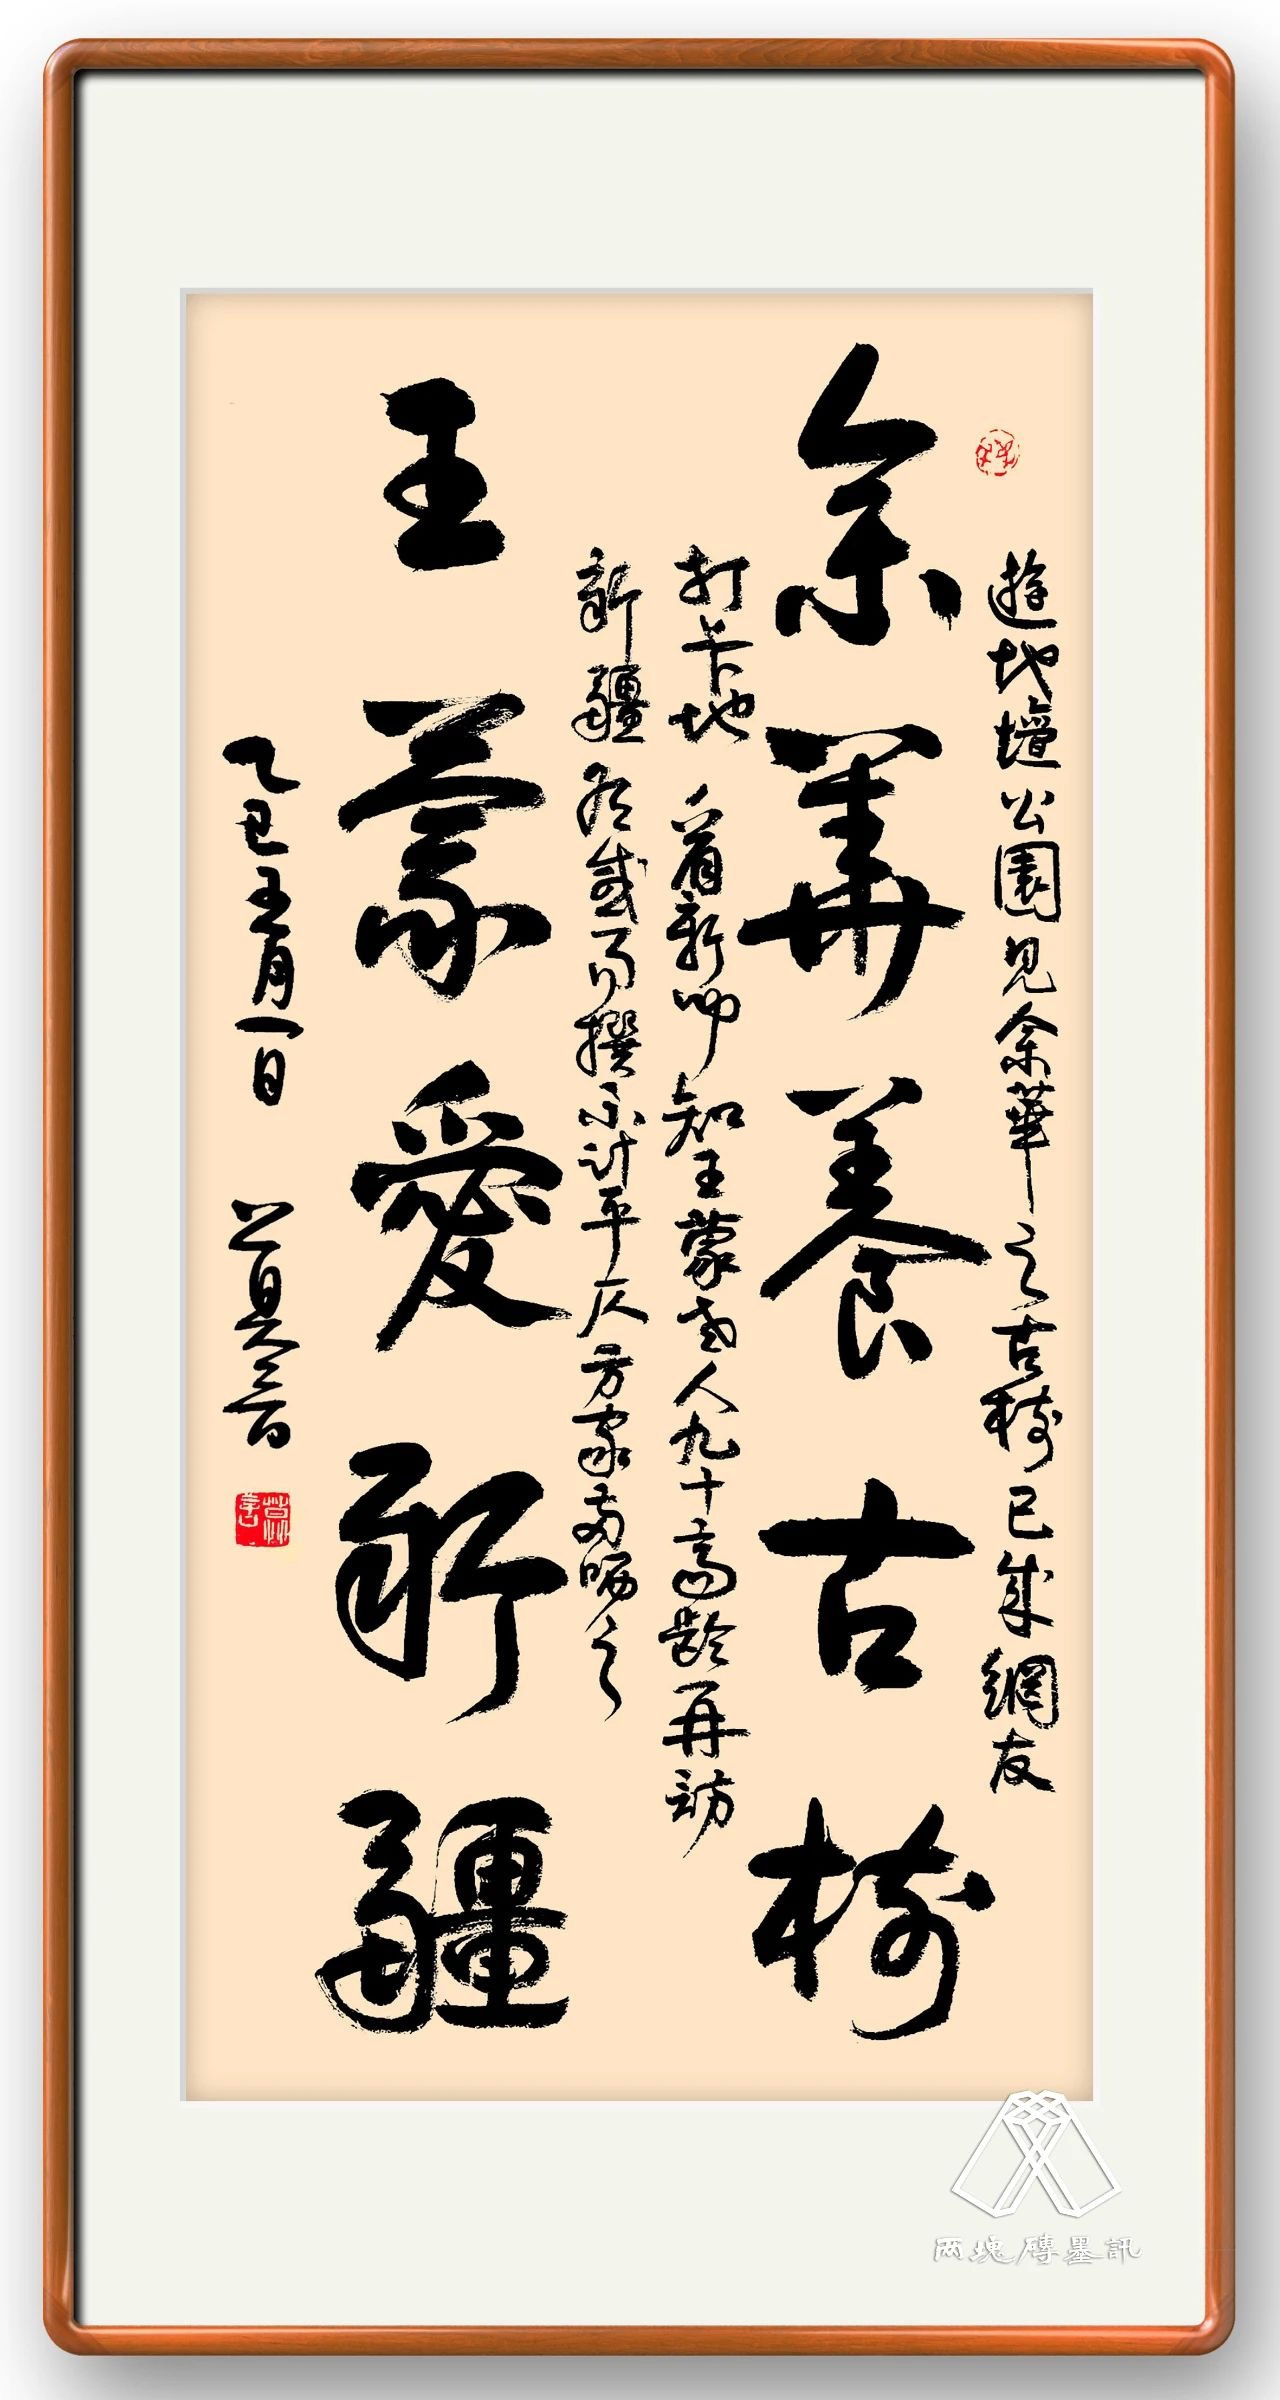 遊地壇公園見余華之古樹已成網友
余華養古樹
打卡地 看新聞知王蒙老人九十高齡再訪
新疆有感而撰不計平仄方家哂之
王蒙愛新疆
乙巳五月一日 莫言
两塊磚墨訊